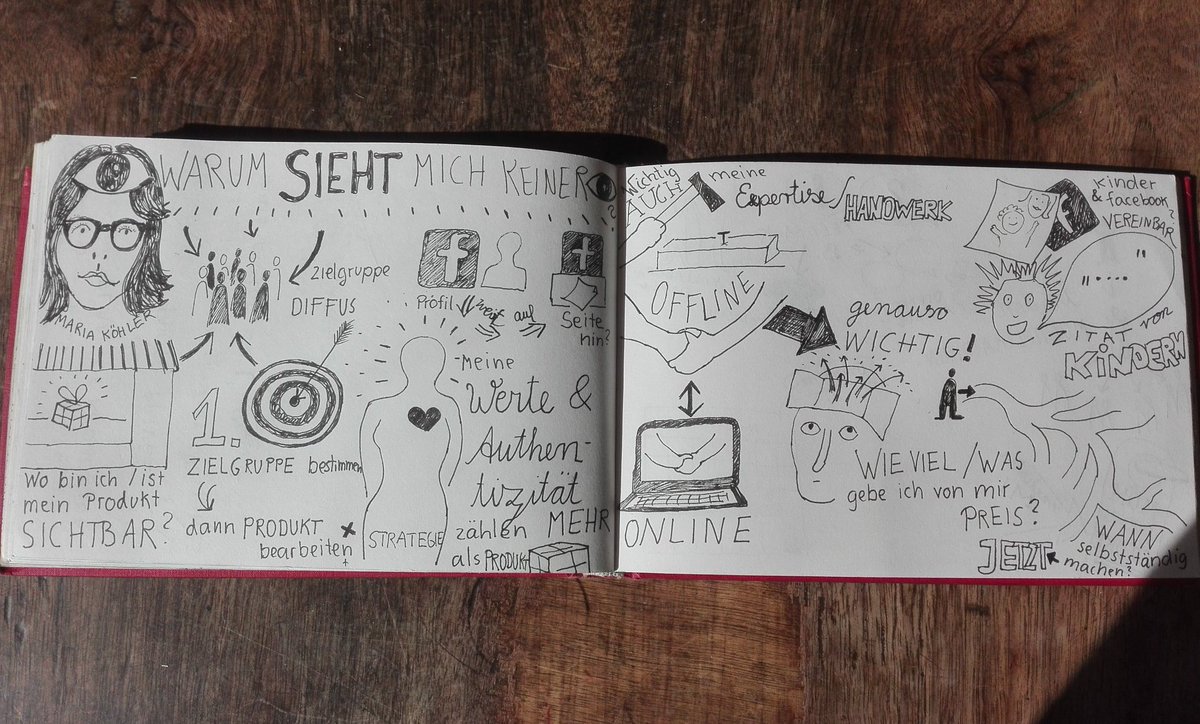 WARUM SIEHT MICH KEINER
?
MARIA KÖHLER
Zielgruppe
DIFFUS
f
Profil
verweist auf
Seite
hin?
1.
ZIELGRUPPE bestimmen
dann PRODUKT
bearbeiten
Wo bin ich / ist
mein Produkt
SICHTBAR?
STRATEGIE
Meine
Werte &
Authen-
tizität
zählen MEHR
als PRODUKT
Wichtig
AUCH
meine
Expertise/HANDWERK
OFFLINE
ONLINE
genauso
WICHTIG!
WIE VIEL / WAS
gebe ich von mir
PREIS?
f
Kinder
& facebook
VEREINBAR?
"....."
ZITAT von
KINDERN
WANN
selbstständig
machen?
JETZT